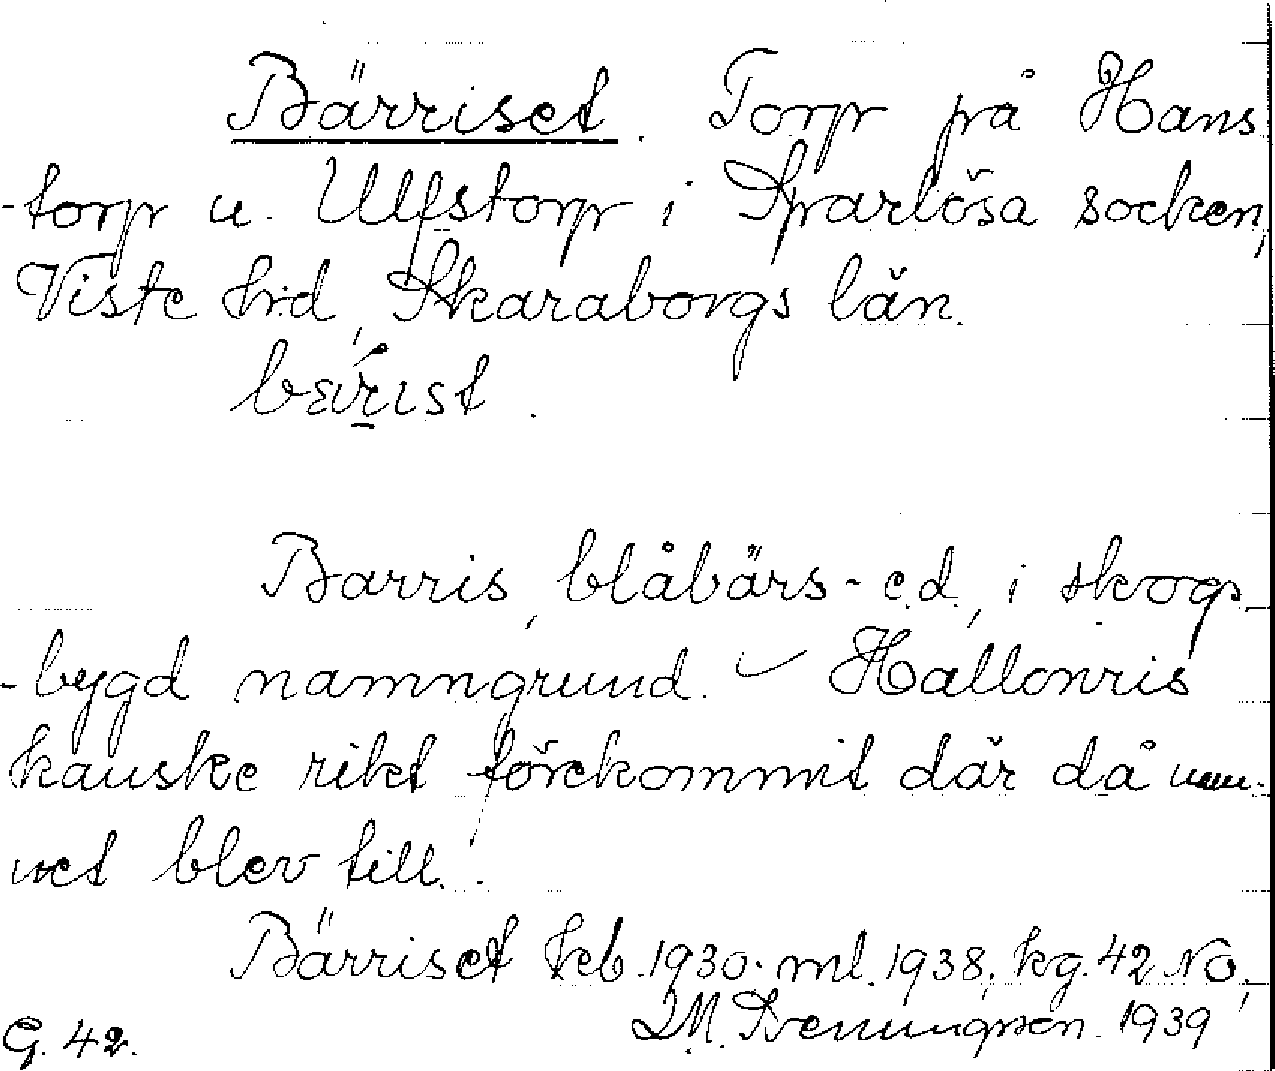 Bärriset. Torp på Hans
-torp u. Ulfstorp i Sparlösa socken,
Viste hrd, Skaraborgs län.
Barris, blåbärs- e.d., i skogs
-bygd namngrund. Hallonris
kanske rikt förekommit där då nam-
net blev till.
Bärriset keb. 1930. ml. 1938, kg. 42 NO,
1939
G. 42.